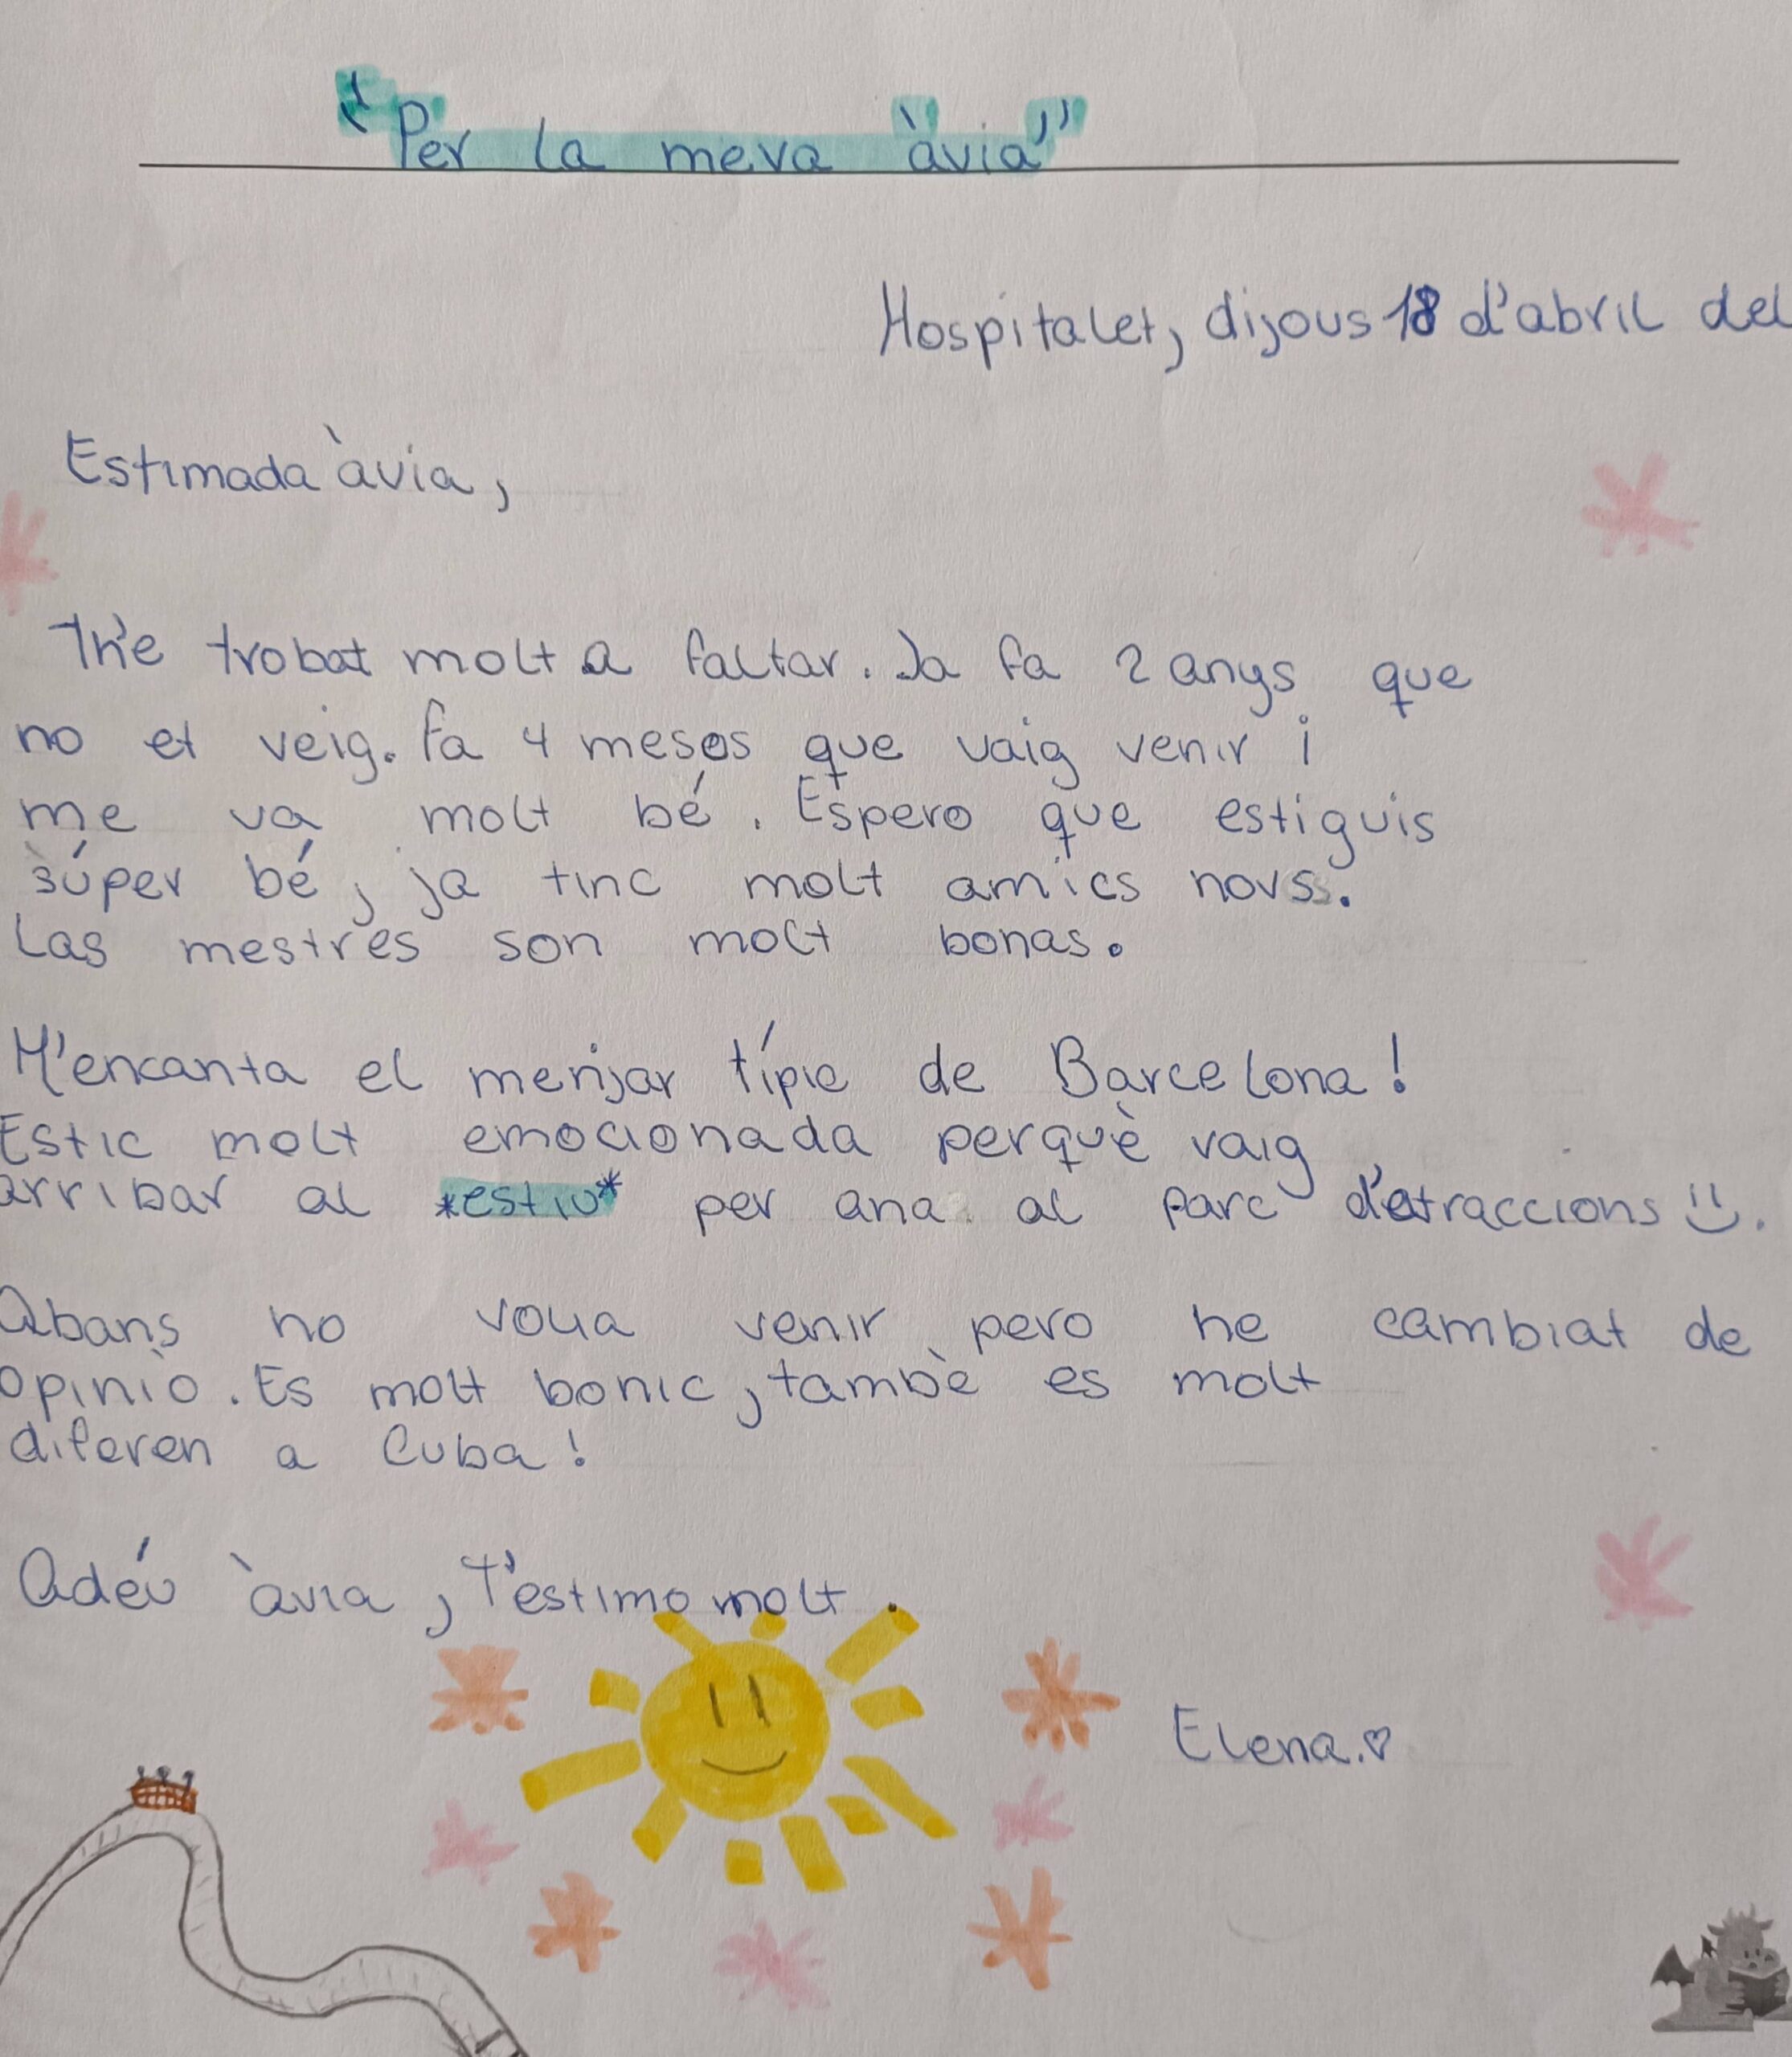 "Per la meva àvia"
Hospitalet, dijous 18 d'abril del
Estimada àvia,
T'he trobat molt a faltar. Ja fa 2 anys que
no et veig. Fa 4 mesos que vaig venir i
me va molt bé. Espero que estiguis
súper bé, ja tinc molt amics novs.
Las mestres son molt bonas.
M'encanta el menjar típic de Barcelona!
Estic molt emocionada perquè vaig
arribar al *estiu* per ana al parc d'atraccions :).
Abans no volia venir pero he cambiat de
opiniò. Es molt bonic, tambè es molt
diferen a Cuba!
Adéu àvia, T'estimo molt.
Elena.♡